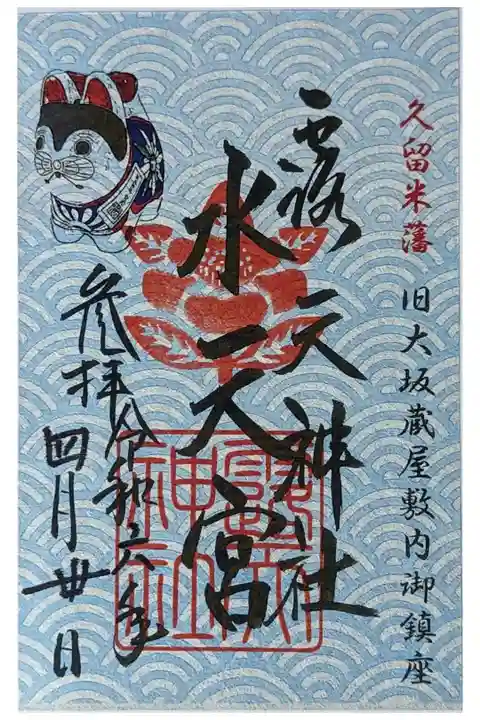 久留米藩
旧大坂蔵屋敷内御鎮座
露天神社
水天宮
参拝令和六年
四月廿日